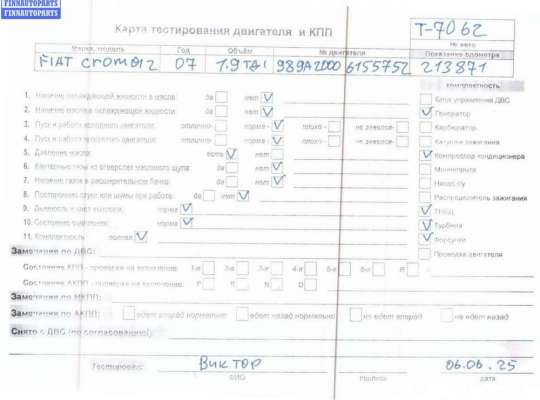 FINNAUTOPARTS
FINNAUTOPARTS
Карта тестирования двигателя и КПП
Т-7062
№ авто
Марка, модель Год Объём № двигателя Показание одометра
FIAT CROMA 2 07 1.9 TDI 939A2000 6155752 213871
комплектность
1. Наличие охлаждающей жидкости в масле: да нет V
Блок управления ДВС
2. Наличие масла в охлаждающей жидкости: да нет V
V Генератор
3. Пуск и работа холодного двигателя: отлично- норма - V плохо - не завелся-
Карбюратор
4. Пуск и работа прогретого двигателя: отлично- норма - V плохо - не завелся-
Катушка зажигания
5. Давление масла: есть V нет
V Компрессор кондиционера
6. Картерные газы из отверстия масляного щупа: да нет V
7. Наличие газов в расширительном бачке: да нет V
8. Посторонние стуки или шумы при работе: да нет V
Распределитель зажигания
9. Дымность и цвет выхлопа: норма V
V ТНВД
10. Состояние сцепления: норма V
V Турбина
11. Компрессия: полная V
V Форсунки
Замечание по ДВС:
Проводка двигателя
Состояние КПП - проверка на включение: 1-я 2-я 3-я 4-я 5-я 6-я R
Состояние АКПП - проверка на включение: P R N D
Замечание по МКПП:
Замечание по АКПП: едет вперёд нормально едет назад нормально не едет вперёд не едет назад
Снято с ДВС (по согласованию):
Тестировал: Виктор 06.06.25
ФИО подпись дата